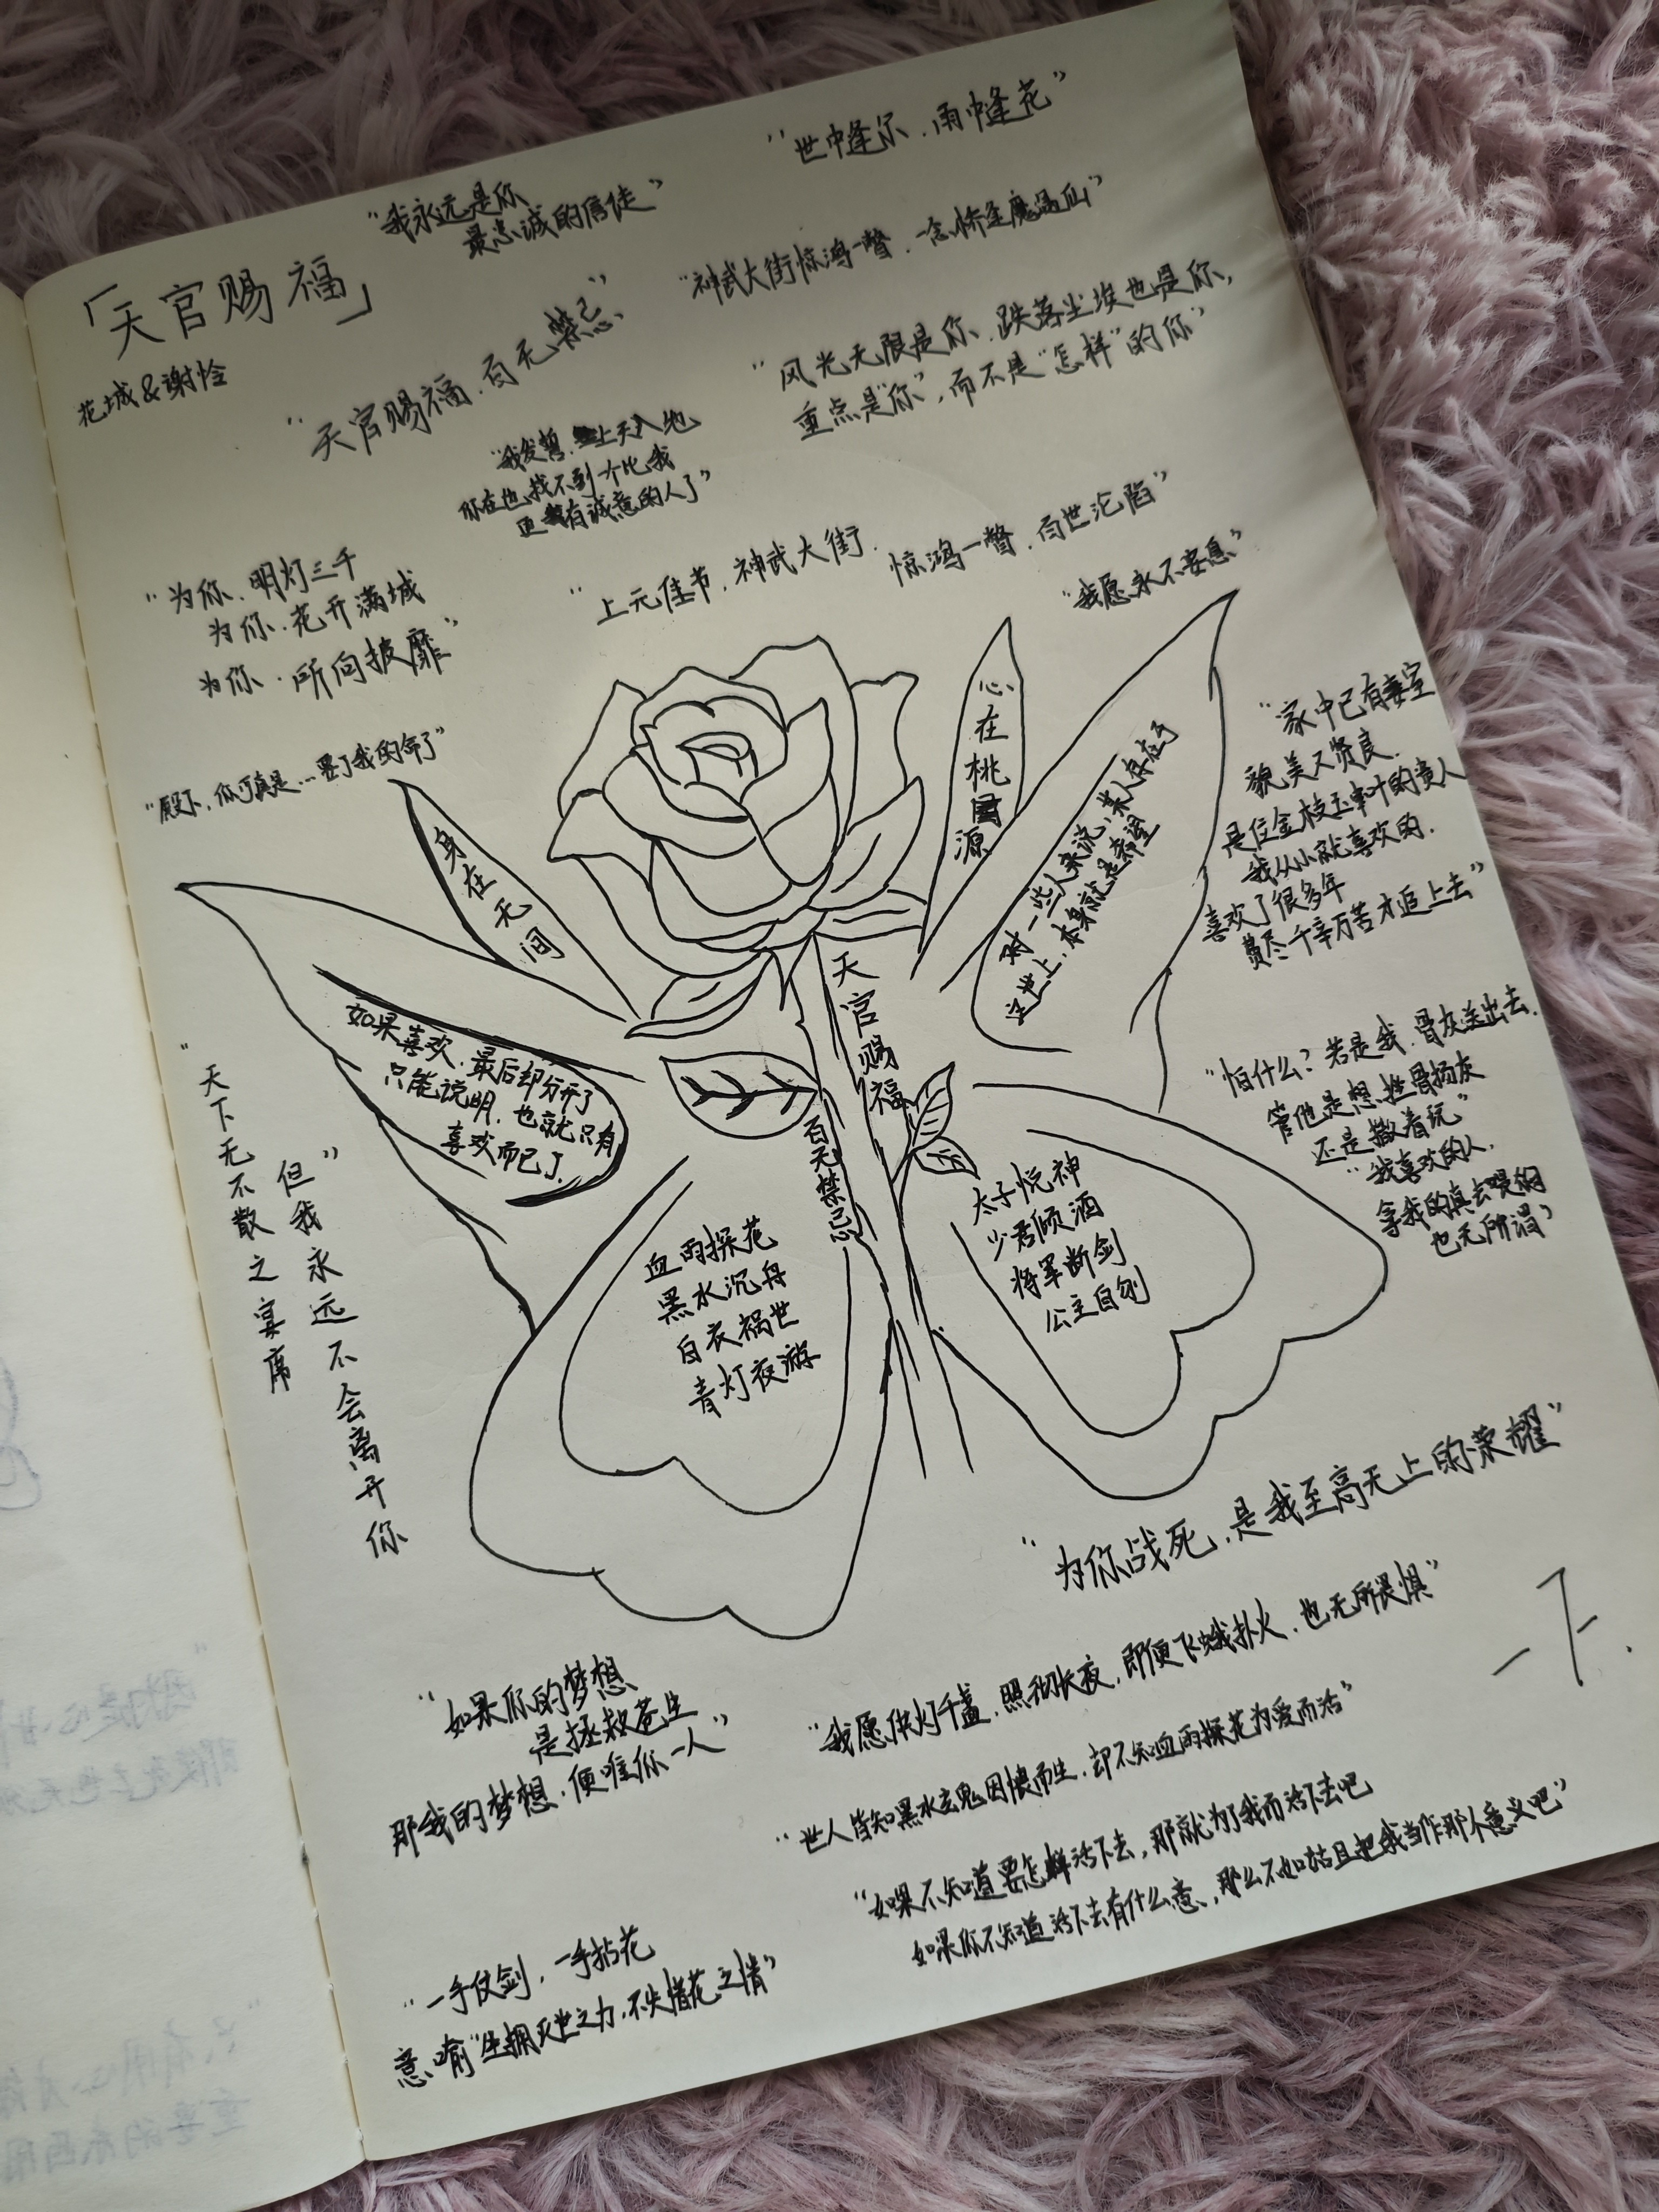 「天官赐福」
花城&谢怜
“我永远是你
最忠诚的信徒”
“世中逢尔，雨中逢花”
“神武大街惊鸿一瞥，一念桥逢魔遇仙”
“天官赐福，百无禁忌”
“风光无限是你，跌落尘埃也是你，
重点是“你”，而不是“怎样”的你”
“我发誓，上天入地
你在也找不到一个比我
更有诚意的人了”
“上元佳节，神武大街，
惊鸿一瞥，百世沦陷”
“我愿永不安息”
“为你，明灯三千
为你，花开满城
为你，所向披靡”
“殿下，你可真是…要了我的命了”
身在无间
心在桃源
对一些人来说，某人存在于
全世上，本身就是希望
“家中已有妻室
貌美又贤良，
是位金枝玉叶的贵人
我从小就喜欢的，
喜欢了很多年
费尽千辛万苦才追上去”
如果喜欢，最后却分开了
只能说明，也就只有
喜欢而已了。
天官赐福
百无禁忌
“怕什么？若是我，骨灰送出去，
管他是想挫骨扬灰
还是撒着玩”
“我喜欢的人，
拿我的真去喂狗
也无所谓”
“天下无不散之宴席
但我永远不会离开你”
血雨探花
黑水沉舟
白衣祸世
青灯夜游
太子悦神
少君倾酒
将军断剑
公主自刎
“为你战死，是我至高无上的荣耀”
“如果你的梦想
是拯救苍生
那我的梦想，便唯你一人”
“我愿供灯千盏，照彻长夜，即便飞蛾扑火，也无所畏惧”
“世人皆知黑水玄鬼因恨而生，却不知血雨探花为爱而活”
“如果不知道要怎样活下去，那就为了我而活下去吧
如果你不知道活下去有什么意，那么不如姑且把我当作那个意义吧”
“一手仗剑，一手拈花
意喻“坐拥灭世之力，不失惜花之情”